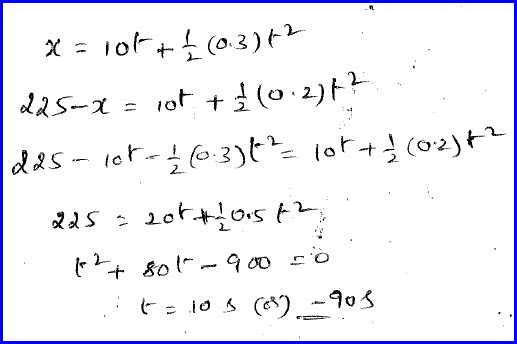 x = 10t + 1/2 (0.3) t²
225 - x = 10t + 1/2 (0.2) t²
225 - 10t - 1/2 (0.3) t² = 10t + 1/2 (0.2) t²
225 = 20t + 1/2 0.5 t²
t² + 80t - 900 = 0
∴ t = 10 s (or) -90s